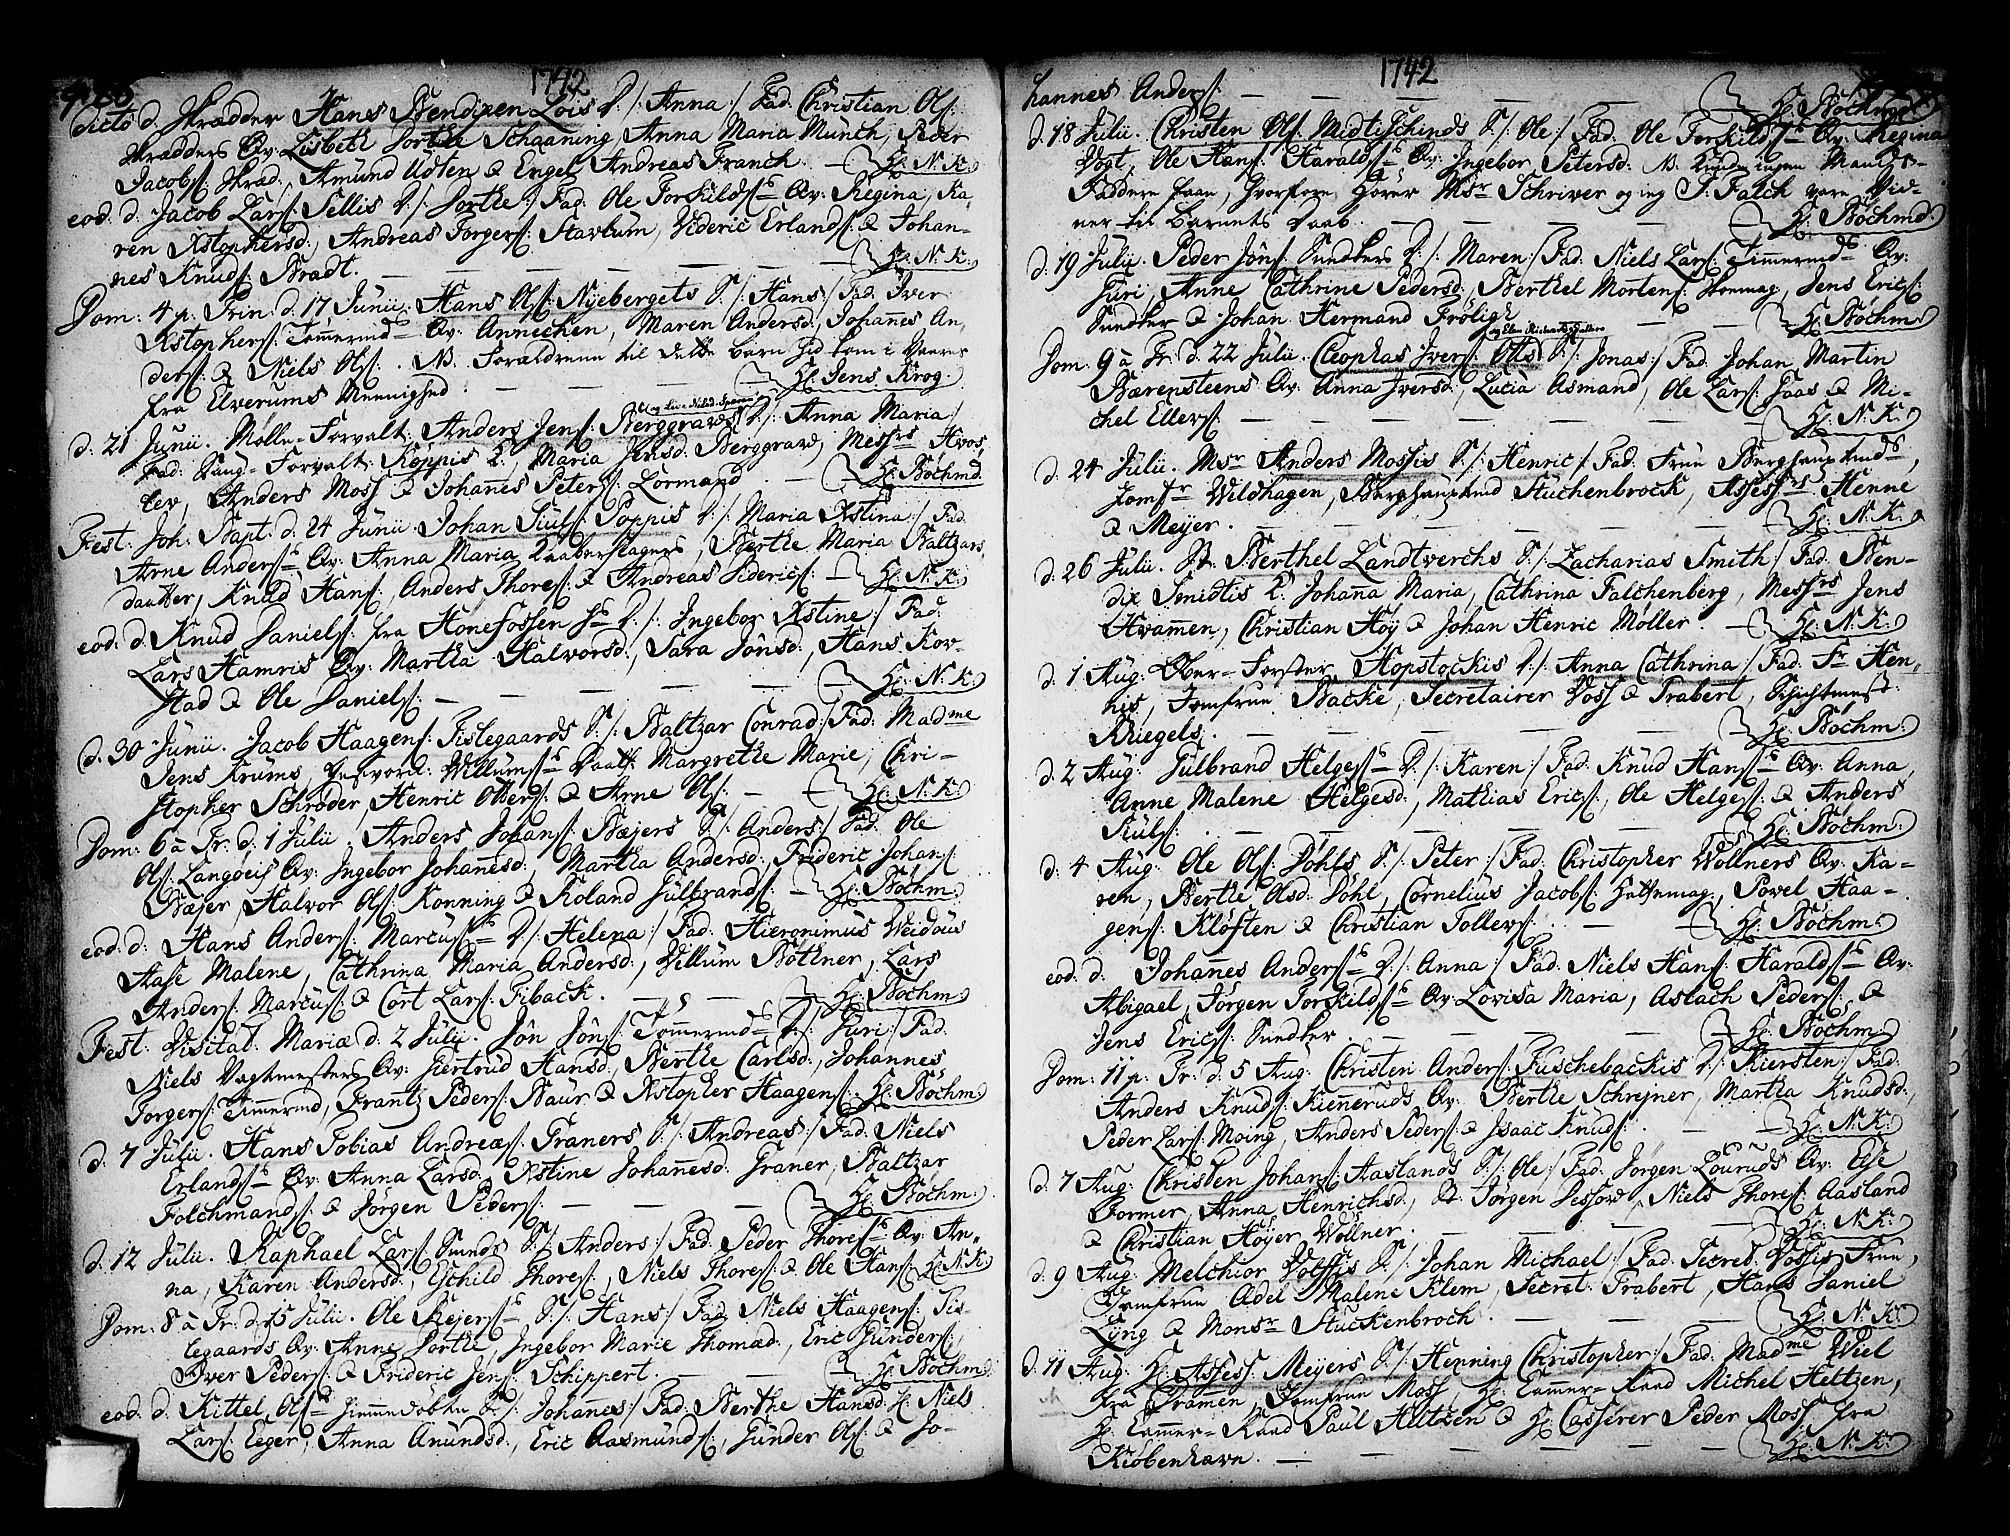 1742
dicto d. Skrædder Hans Bendixen Lois D./: Anna:/ Fad. Christian Ols:
Skrædders Qv: Lisbeth Dorthe Schaaning Anna Maria Münch, Peder
Jacobs: Skræd, Amund Udten & Engel Andreas Franck. — H: N. K:
eod. d. Jacob Lars: Sellis D./: Dorthe:/ Fad: Ole Torkilds: Qv: Regina, Ka-
ren Xstophersd:, Andreas Torgers: Stavlum, Dideric Erlands: & Johan-
nes Knuds: Bradt. — H: N. K:
Dom: 4 p: Trin: d. 17 Junii. Hans Ols: Nyebergets S./: Hans:/ Fad: Iver
Xstophers: Tømmermds Qv: Annechen, Maren Andersd:, Johannes An-
ders: & Niels Ols: . NB. Forældrene til dette barn hid kom i Vaares
fra Elverums Mennighed. — H: Jens Krog.
og Liv Nilsd. Spæren
d. 21 Junii. Mølle-Forvalt: Anders Jens: Berggravs D./: Anna Maria:/
Fad: Saug-Forvalt: Koppis K:, Maria Jensd: Berggrav, Messrs Hvos-
lev, Anders Moss & Johannes Peters: Lormand. — H: Bøchmd.
Fest: Joh: Bapt: d. 24 Junii. Johan Siuls: Poppis D./: Maria Xstina:/ Fad.
Arne Anders: Qv: Anna Maria Kaaberslagers, Berthe Maria Baltzars
daatter, Knud Hans:, Anders Thores: & Andreas Diderics: — H: N. K:
eod. d. Knud Daniels: fra Hønefossen D./: Ingebor Xstine:/ Fad:
Lars Hamris Qv: Martha Halvorsd:, Sara Jønsd:, Hans Kov-
stad & Ole Daniels: — H: N. K:
d. 30 Junii. Jacob Haagens: Fislegaards S./: Baltzar Conrad:/ Fad: Madme
Jens Krums, Willums: Daatt: Margrethe Marie, Chri-
stopher Schrøder, Henric Olsers: & Arne Ols: — H: N. K:
Dom: 6 à Tr: d. 1 Julii. Anders Johans: Bæjers S./: Anders:/ Fad. Ole
Ols: Langøeis Qv: Ingebor Johannesd:, Martha Andersd:, Frideric Johans:
Bæjer, Halvor Ols: Konning & Roland Gulbrands: — H: Bøchm:
eod: d: Hans Anders: Marcus: D./: Helena:/ Fad: Hieronimus Weidaus
Aase Malene, Cathrina Maria Andersd:, Willum Bøttner, Lars
Anders: Marcus: & Cort Lars: Fiback. — H: Bøchm:
Fest: Visitat: Mariæ d. 2 Julii. Jøn Jøns: Tømmermds D./: Guri:/ Fad.
Niels Vagtmesters Qv: Giertrud Hansd:, Berthe Carlsd:, Johannes
Torgers: Timmermd, Frantz Peders: Baur & Xstopher Haagens: H: Bøchmd
d. 7 Julii. Hans Tobias Andreæs: Graners S./: Andreas:/ Fad. Niels
Erlands: Qv: Anna Larsd:, Xstine Johannesd: Graner, Baltzar
Folchmands: & Jørgen Peders: — H: Bøchm:
d. 12 Julii. Raphael Lars: Sunds S./: Anders:/ Fad: Peder Thores: Qv: An-
na, Karen Andersd:, Eschild Thores:, Niels Thores: & Ole Hans: H: N. K:
Dom: 8 à Tr: d. 15 Julii. Ole Bejers: S./: Hans:/ Fad. Niels Haagens: Fis-
legaards Qv: Anne Dorthe, Ingebor Marie Thomæd:, Eric Gunders:,
Iver Peders: & Frideric Jens: Schippert. — H: Bøchm:
eod. d. Kittel Ols: S./: Johannes:/ Fad: Berthe Hansd: H: Niels
Lars: Eeger, Anna Anundsd:, Eric Aasmunds:, Gunder Ols: & Jo-
1742
hannes Anders: — H: Bøchmd
d. 18 Julii. Christen Ols: Midtischinds S./: Ole:/ Fad. Ole Torkilds: Qv: Regina
Vogt, Ole Hans: Haralds: Qv: Ingebor Petersd: NB. Kunde ingen Mands-
Faddere faae, hvorfore hører Msr Schriver og ieg T: Falck være Vid-
ner til Barnets Daab. — H: Bøchmd.
d. 19 Julii. Peder Jøns: Snedkers D./: Maren:/ Fad. Niels Lars: Timmermds Qv:
Guri, Anne Cathrine Pedersd:, Berthel Mortens: Skommag, Jens Erics:
Snedker & Johan Hermand Frølig. — H: Bøchm:
og Elen Richardsdatter
Dom: 9 à Tr: d. 22 Julii. Cleophas Ivers: Olls S./: Jonas:/ Fad: Johan Martin
Bærensteens Qv: Anna Iversd:, Lucia Asmand, Ole Lars: Faas & Mi-
chel Ellers: — H: N. K:
d. 24 Julii. Msr Anders Mossis S./: Henric:/ Fad. Frue Berghauptmds,
Jomfr Wildhagen, Berghauptmd Stuchenbrock, Assessrs Henne
& Meyer. — H: N. K:
d. 26 Julii. St: Berthel Landtverchs S./: Zacharias Smith:/ Fad. Ben-
dix Smidtis K: Johana Maria, Cathrina Falchenberg, Messrs Jens
Hvammen, Christian Høy & Johan Henric Møller. — H: N. K:
d. 1 Aug: Ober-Forster Hopstockis D./: Anna Cathrina:/ Fad. Fr Hen-
kis, Jomfrue Backe, Secretairer Voss & Trabert, Schichtmest:
Kriegels. — H: Bøchm:
d. 2 Aug: Gulbrand Helges: D./: Karen:/ Fad. Knud Hans: Qv: Anna,
Anne Malene Helgesd:, Mathias Erics:, Ole Helges: & Anders
Siuls: — H: Bøchm:
d. 4 Aug: Ole Ols: Døhls S./: Peter:/ Fad: Christopher Wollners Qv: Ka-
ren, Berthe Olsd: Døhl, Cornelius Jacobs: Hattemag, Povel Haa-
gens: Kløften & Christian Tollers: — H: Bøchm:
eod: d: Johannes Anders: D./: Anna:/ Fad. Niels Hans: Haralds: Qv:
Abigael, Jørgen Torkilds: Qv: Lovisa Maria, Aslach Peders: &
Jens Erics: Snedker — H: Bøchm:
Dom: 11 p: Tr: d. 5 Aug: Christen Anders: Fuschebackis D./: Kiersten:/ Fad.
Anders Knuds: Kienneruds Qv: Berthe Schrejner, Martha Knudsd:,
Peder Lars: Moing, Anders Peders: & Isaac Knuds: — H: N. K:
d. 7 Aug: Christen Johans: Aaslands S./: Ole:/ Fad. Jørgen Louruds Qv: Else
Former, Anna Henrichsd:, St: Jørgen Desford, Niels Thores: Aasland
& Christian Høyer Wollner. — H: N. K:
d. 9 Aug: Melchior Vossis S./: Johan Michael:/ Fad: Secret: Vossis Frue,
Jomfrue Adel Malene Klem, Secret: Trabert, Hans Daniel
Lyng & Monsr Stuckenbroch. — H: N. K:
d. 11 Aug: H: Assess: Meyers S./: Henning Christopher:/ Fad: Madme Wiel
fra Dramen, Jomfrue Moss, H: Cammer-Raad Michel Heltzen,
H: Cammer-Raad Paul Heltzen & H: Casserer Peder Moss fra
Kiøbenhavn. — H: N. K: